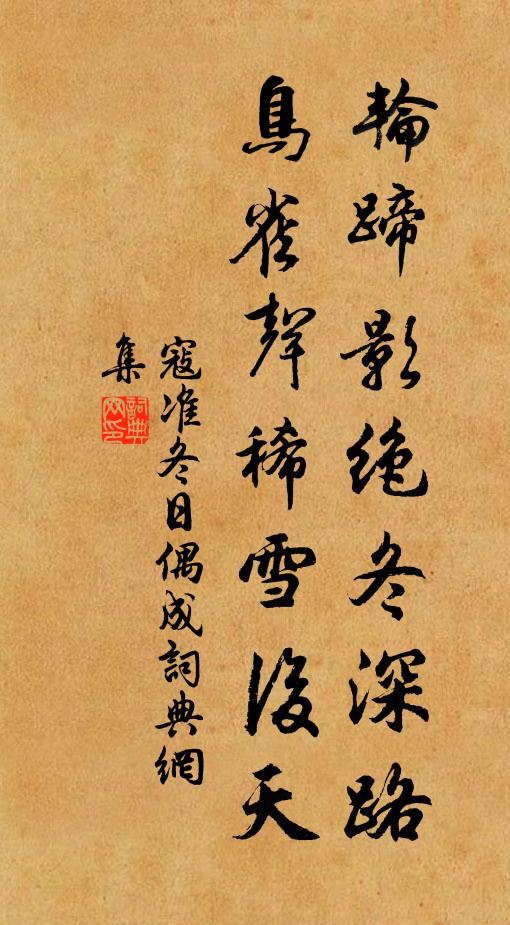 輪蹄影絕冬深路
鳥雀聲稀雪後天
寇准冬日偶成詞典網
集
詞典
网印